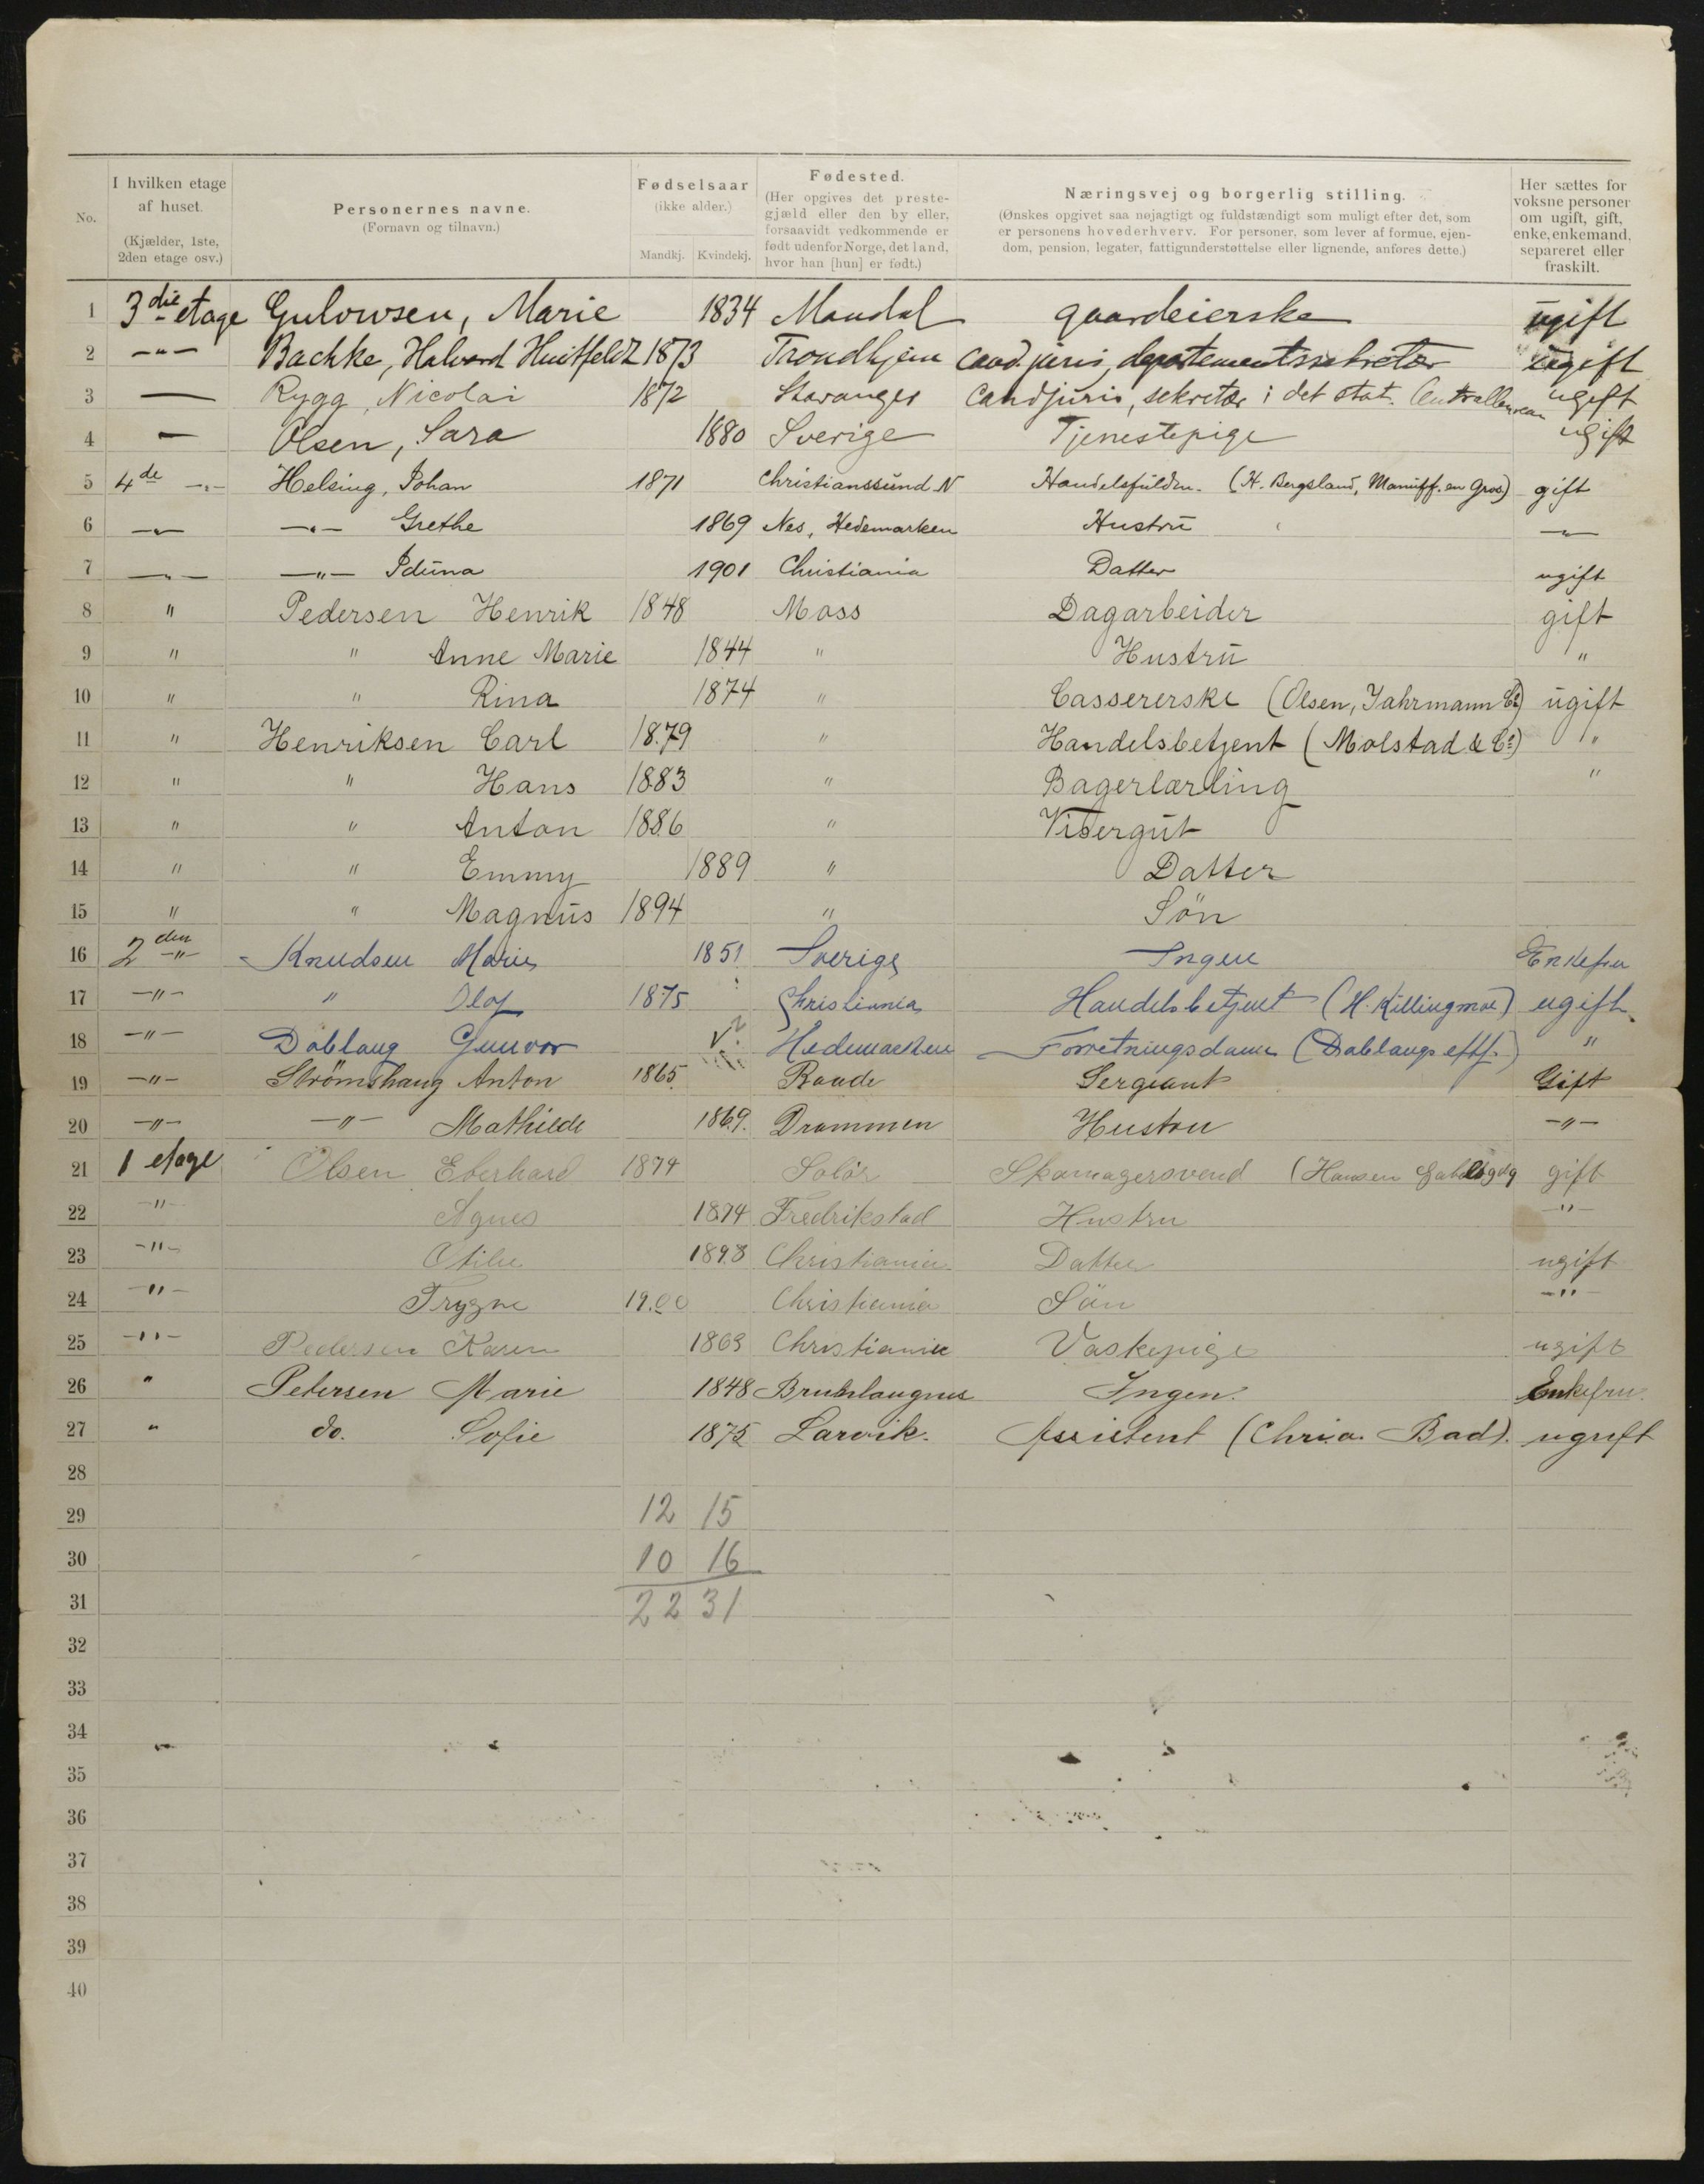 No. | I hvilken etage af huset. (Kjælder, 1ste, 2den etage osv.) | Personernes navne. (Fornavn og tilnavn.) | Fødselsaar (ikke alder.) Mandkj. Kvindekj. | Fødested. (Her opgives det prestegjæld eller den by eller, forsaavidt vedkommende er født udenfor Norge, det land, hvor han [hun] er født.) | Næringsvej og borgerlig stilling. (Ønskes opgivet saa nøjagtigt og fuldstændigt som muligt efter det, som er personens hovederhverv. For personer, som lever af formue, ejendom, pension, legater, fattigunderstøttelse eller lignende, anføres dette.) | Her sættes for voksne personer om ugift, gift, enke, enkemand, separeret eller fraskilt.
1 3die etage Gulowsen, Marie 1834 Mandal gaardeierske ugift
2 —"— Bachke, Halvard Huitfeldt 1873 Trondhjem cand. juris, departementssekretær ugift
3 — Rygg, Nicolai 1872 Stavanger cand juris, sekretær i det stat. Centralbureau ugift
4 — Olsen, Sara 1880 Sverige Tjenestepige ugift
5 4de —"— Helsing, Johan 1871 Christianssund N Handelsfuldm. (H. Bergsland, Manuff. en Gros) gift
6 —"— —"— Grethe 1869 Nes, Hedemarken Hustru —"—
7 —"— —"— Iduna 1901 Christiania Datter ugift
8 " Pedersen Henrik 1848 Moss Dagarbeider gift
9 " " Anne Marie 1844 " Hustru "
10 " " Rina 1874 " Cassererske (Olsen, Jahrmann Co) ugift
11 " Henriksen Carl 1879 " Handelsbetjent (Molstad & Co) "
12 " " Hans 1883 " Bagerlærling "
13 " " Anton 1886 " Visergut
14 " " Emmy 1889 " Datter
15 " " Magnus 1894 " Søn
16 2den —"— Knudsen Marie 1851 Sverige Ingen Enkefru
17 —"— " Olaf 1875 Christiania Handelsbetjent (H. Killingmoe) ugift
18 —"— Dæblaug Gunvor ? Hedemarken Forretningsdame (Dæblaugs eftf.) "
19 —"— Strömshaug Anton 1865 Raade Sergeant Gift
20 —"— —"— Mathilde 1869. Drammen Hustru —"—
21 1 etage Olsen Eberhard 1874 Solör Skomagersvend (Hansen gift
22 —"— Agnes 1874 Fredrikstad Hustru —"—
23 —"— Otilie 1898 Christiania Datter ugift
24 —"— Trygve 1900 Christiania Sön —"—
25 —"— Pedersen Karen 1863 Christiania Vaskepige ugift
26 " Petersen Marie 1848 Brunlaugnes Ingen. Enkefru.
27 " do. Sofie 1875 Larvik. Assistent (Chria. Bad). ugift
28
29 12 15
30 10 16
31 22 31
32
33
34
35
36
37
38
39
40